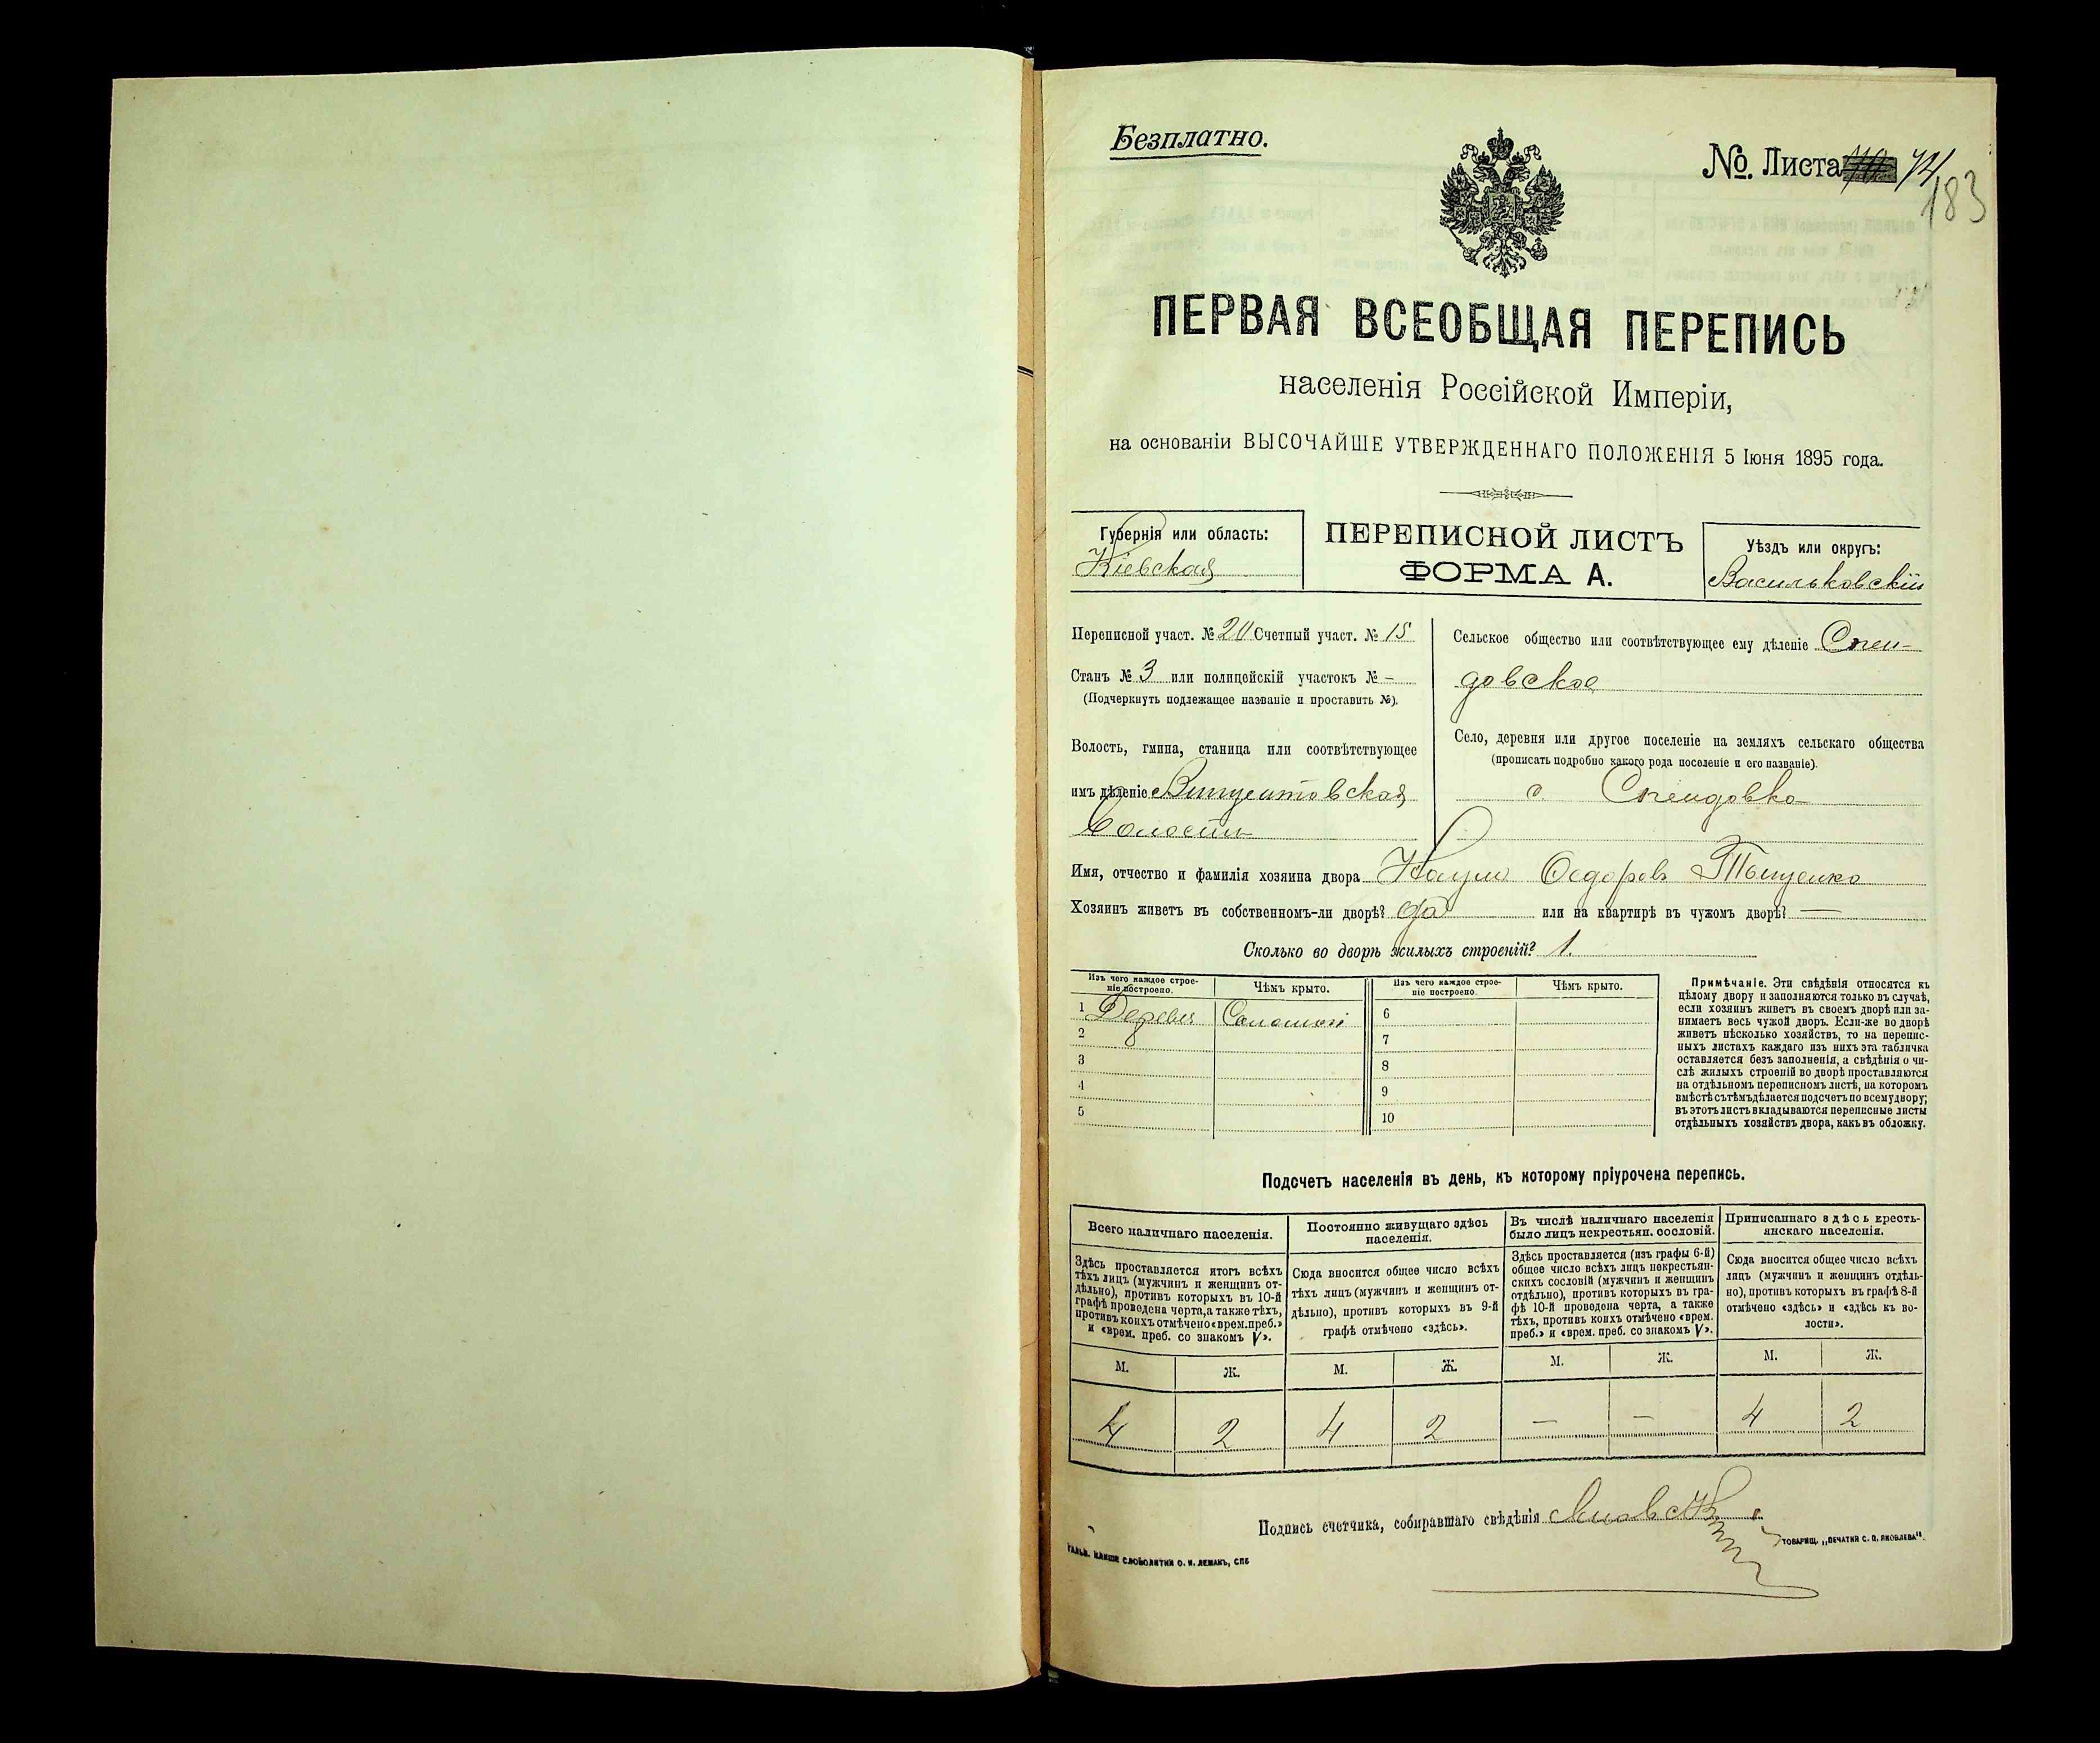 Безплатно.
№. Листа 72
183
ПЕРВАЯ ВСЕОБЩАЯ ПЕРЕПИСЬ
населенія Россійской Имперіи,
на основаніи ВЫСОЧАЙШЕ УТВЕРЖДЕННАГО ПОЛОЖЕНІЯ 5 Іюня 1895 года.
Губернія или область:
Кіевская
ПЕРЕПИСНОЙ ЛИСТЪ
ФОРМА А.
Уѣздъ или округъ:
Васильковскій
Переписной участ. № 20 Счетный участ. № 15
Станъ № 3 или полицейскій участокъ № –
(Подчеркнуть подлежащее названіе и проставить №).
Волость, гмина, станица или соотвѣтствующее
имъ дѣленіе Винцентовская
волость
Сельское общество или соотвѣтствующее ему дѣленіе Спен-
довское
Село, деревня или другое поселеніе на земляхъ сельскаго общества
(прописать подробно какого рода поселеніе и его названіе).
с. Спендовка
Имя, отчество и фамилія хозяина двора Наумъ Ѳедоровъ Тыщенко
Хозяинъ живетъ въ собственномъ-ли дворѣ? да или на квартирѣ въ чужомъ дворѣ? —
Сколько во дворѣ жилыхъ строеній? 1.
Изъ чего каждое строе-
ніе построено.
Чѣмъ крыто.
Изъ чего каждое строе-
ніе построено.
Чѣмъ крыто.
1 Дерева Соломой 6
2 7
3 8
4 9
5 10
Примѣчаніе. Эти свѣдѣнія относятся къ
цѣлому двору и заполняются только въ случаѣ,
если хозяинъ живетъ въ своемъ дворѣ или за-
нимаетъ весь чужой дворъ. Если-же во дворѣ
живетъ нѣсколько хозяйствъ, то на перепис-
ныхъ листахъ каждаго изъ нихъ эта табличка
оставляется безъ заполненія, а свѣдѣнія о чи-
слѣ жилыхъ строеній во дворѣ проставляются
на отдѣльномъ переписномъ листѣ, на которомъ
вмѣстѣ съ тѣмъ дѣлается подсчетъ по всему двору;
въ этотъ листъ вкладываются переписные листы
отдѣльныхъ хозяйствъ двора, какъ въ обложку.
Подсчетъ населенія въ день, къ которому пріурочена перепись.
Всего наличнаго населенія.
Здѣсь проставляется итогъ всѣхъ
тѣхъ лицъ (мужчинъ и женщинъ от-
дѣльно), противъ которыхъ въ 10-й
графѣ проведена черта, а также тѣхъ,
противъ коихъ отмѣчено «врем. преб.»
и «врем. преб. со знакомъ V».
Постоянно живущаго здѣсь
населенія.
Сюда вносится общее число всѣхъ
тѣхъ лицъ (мужчинъ и женщинъ от-
дѣльно), противъ которыхъ въ 9-й
графѣ отмѣчено «здѣсь».
Въ числѣ наличнаго населенія
было лицъ некрестьян. сословій.
Здѣсь проставляется (изъ графы 6-й)
общее число всѣхъ лицъ некрестьян-
скихъ сословій (мужчинъ и женщинъ
отдѣльно), противъ которыхъ въ гра-
фѣ 10-й проведена черта, а также
тѣхъ, противъ коихъ отмѣчено «врем.
преб.» и «врем. преб. со знакомъ V».
Приписаннаго здѣсь кресть-
янскаго населенія.
Сюда вносится общее число всѣхъ
лицъ (мужчинъ и женщинъ отдѣль-
но), противъ которыхъ въ графѣ 8-й
отмѣчено «здѣсь» и «здѣсь къ во-
лости».
М. Ж. М. Ж. М. Ж. М. Ж.
4 2 4 2 — — 4 2
Подпись счетчика, собиравшаго свѣдѣнія
СЛОВОЛИТНИ О. И. ЛЕМАНЪ, СПБ
ТОВАРИЩ. „ПЕЧАТНЯ С. П. ЯКОВЛЕВА".